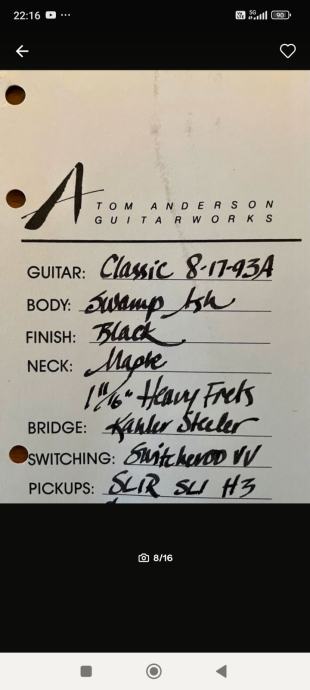 22:16
5G
90
A
TOM ANDERSON
GUITARWORKS
GUITAR: Classic 8-17-93A
BODY: Swamp Ash
FINISH: Black
NECK: Maple
1 11/16" Heavy Frets
BRIDGE: Kahler Steeler
SWITCHING: Switcheroo VV
PICKUPS: SL1R SL1 H3
8/16